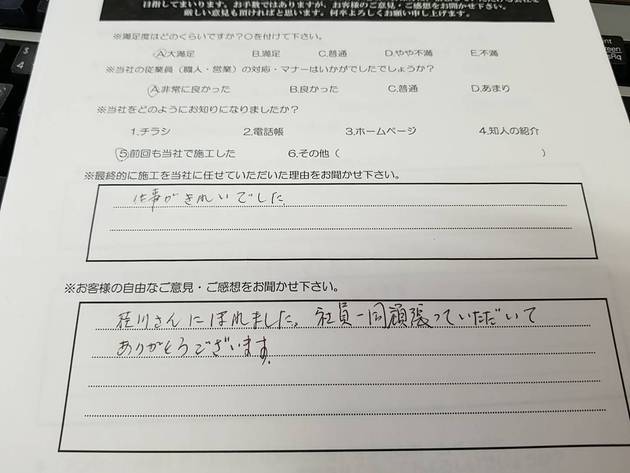 目指してまいります。お手数ではありますが、お客様のご意見・ご感想をお聞かせ下さい。
厳しい意見も頂ければと思います。何卒よろしくお願い申し上げます。
※満足度はどのくらいですか？○を付けて下さい。
A.大満足 B.満足 C.普通 D.やや不満 E.不満
※当社の従業員（職人・営業）の対応・マナーはいかがでしたでしょうか？
A.非常に良かった B.良かった C.普通 D.あまり
※当社をどのようにお知りになりましたか？
1.チラシ 2.電話帳 3.ホームページ 4.知人の紹介
5.前回も当社で施工した 6.その他（ ）
※最終的に施工を当社に任せていただいた理由をお聞かせ下さい。
仕事がきれいでした。
※お客様の自由なご意見・ご感想をお聞かせ下さい。
川さんにほれました。社員一同頑張っていただいて
ありがとうございます。